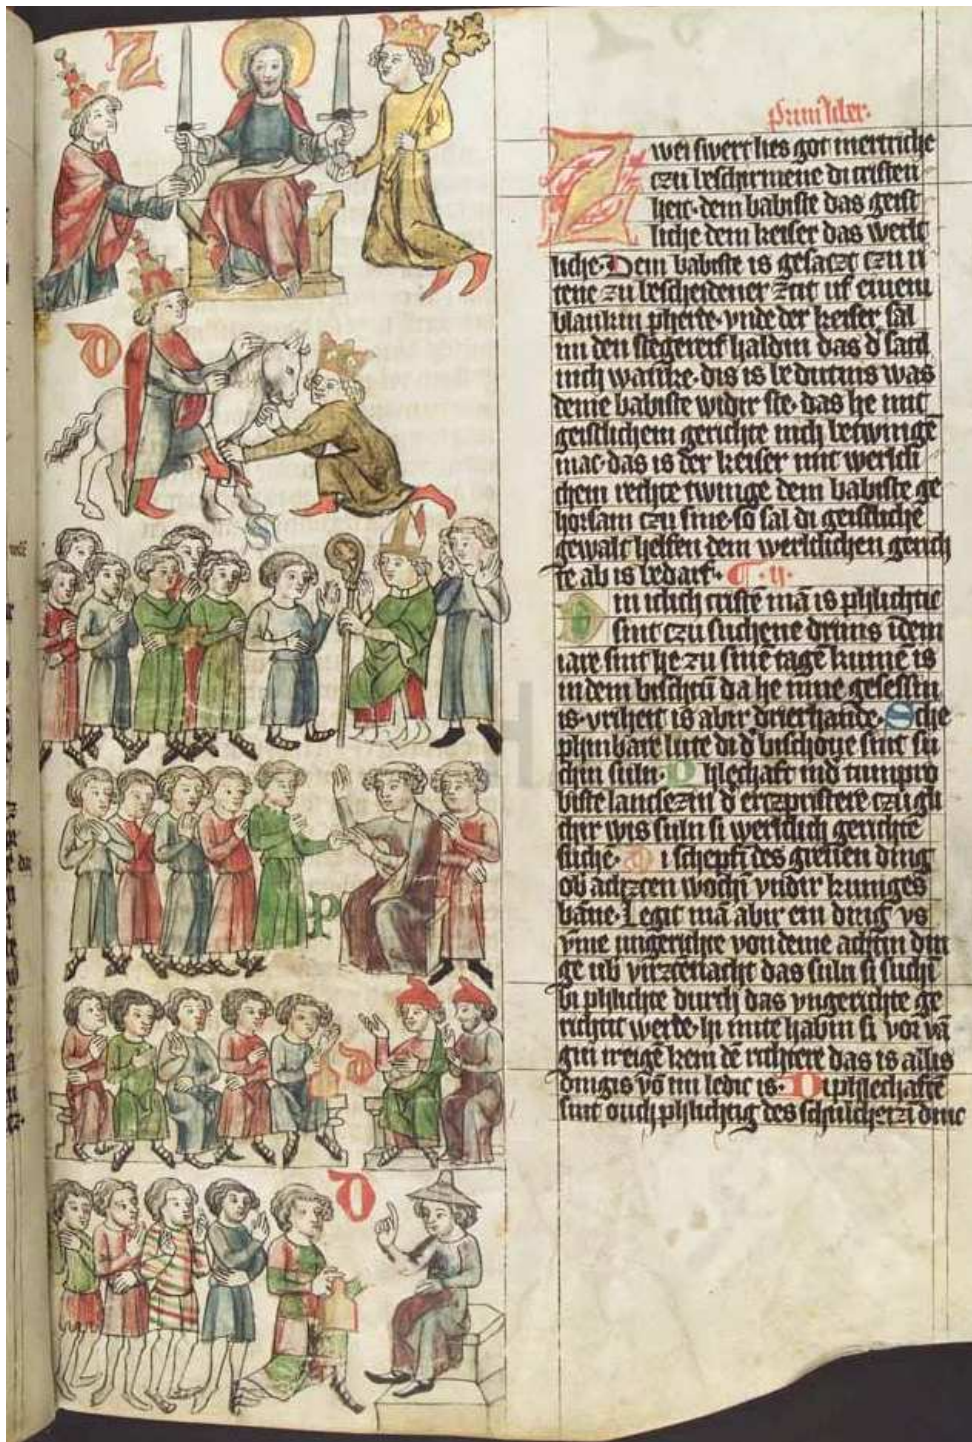 Z
D
S
P
D
D
Primus liber.
Zwei swert lies got in ertriche
czu beschirmene di cristen
heit. dem babiste das geist
liche dem keiser das werlt
liche. Dem babiste is gesaczt czu ri
tene zu bescheidener zcit uf eime
blankin pherde. vnde der keiser sal
im den stegereif haldin das d' satil
nich wanke. dis is bedutnis was
deme babiste widir ste. das he mit
geistlichem gerichte nich betwinge
mac. das is der keiser mit werltli
chem rechte twinge dem babiste ge
horsam czu sine. so sal di geistliche
gewalt helfen dem werltlichen gerich
te ab is bedarf. ¶ .ij.
Ein iclich cristē mā is phlichtic
sint czu suchene driins ī dem
iare sint he zu sinē tagē kumē is
in dem bischtū da he inne gesessin
is. vriheit is abir drierhande. Sche
phinbare lute di d' bischoue sint su
chin suln. Phlechafte ind tumpro
biste lantsezin d' erczpristere czu gli
chir wis suln si werltlich gerichte
suchē. Di schepfī des greuen ding
ob achzcen wochī vndir kuniges
bāne. Legit mā abir ein ding vs
vme ungerichte von deme achtin din
ge ub' virzcennacht das suln si suchī
di phlichte durch das vngerichte ge
richtit werde. hi mite habin si vor vā
gin ir eigē kein dē richtere das is allis
dingis vō im ledic is. Di phlechafte
sint ouch phlichtig des schultheizī dinc